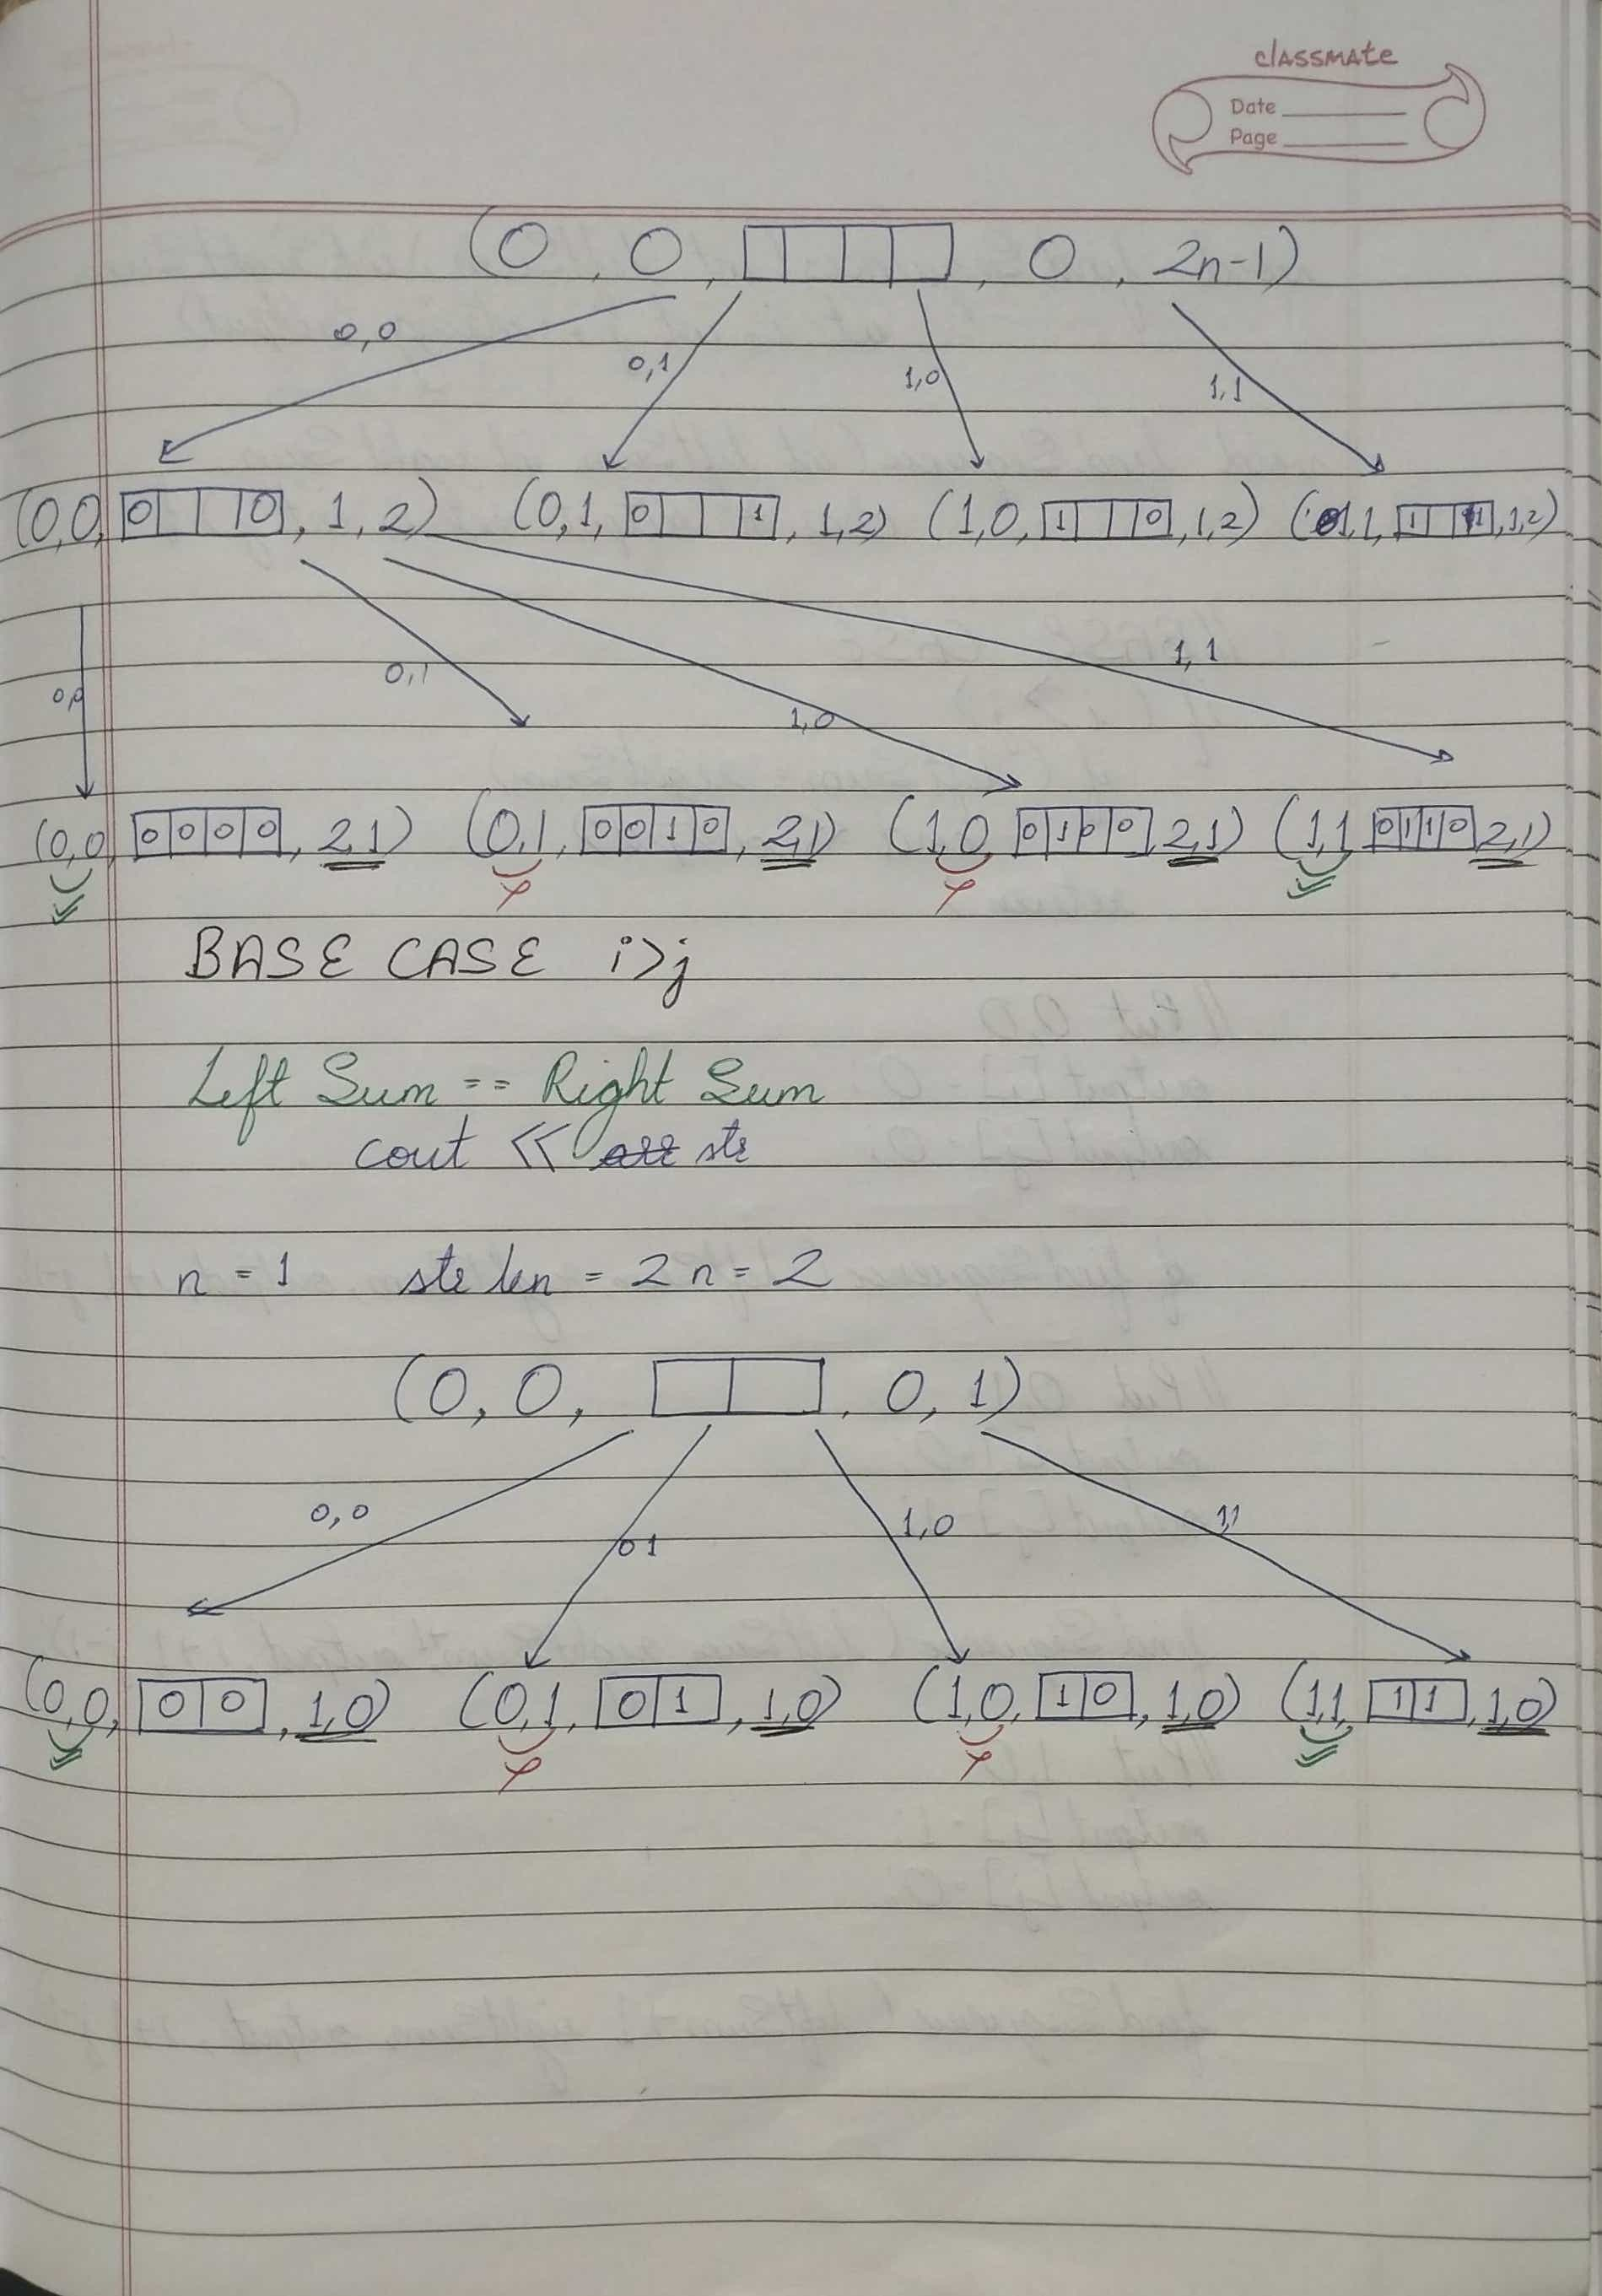 classmate
Date
Page
(0, 0, , 0, 2n-1)
0,0 0,1 1,0 1,1
(0,0, 0 0, 1, 2) (0,1, 0 1, 1,2) (1,0, 1 0, 1,2) (1,1, 1 1, 1,2)
0,0 0,1 1,0 1,1
(0,0, 0 0 0 0, 2,1) (0,1, 0 0 1 0, 2,1) (1,0 0 1 0 0, 2,1) (1,1 0 1 1 0 2,1)
BASE CASE i>j
Left Sum == Right Sum
cout << str
n = 1 str len = 2n = 2
(0, 0, , 0, 1)
0,0 0 1 1,0 1,1
(0,0, 0 0, 1,0) (0,1, 0 1, 1,0) (1,0, 1 0, 1,0) (1,1, 1 1, 1,0)